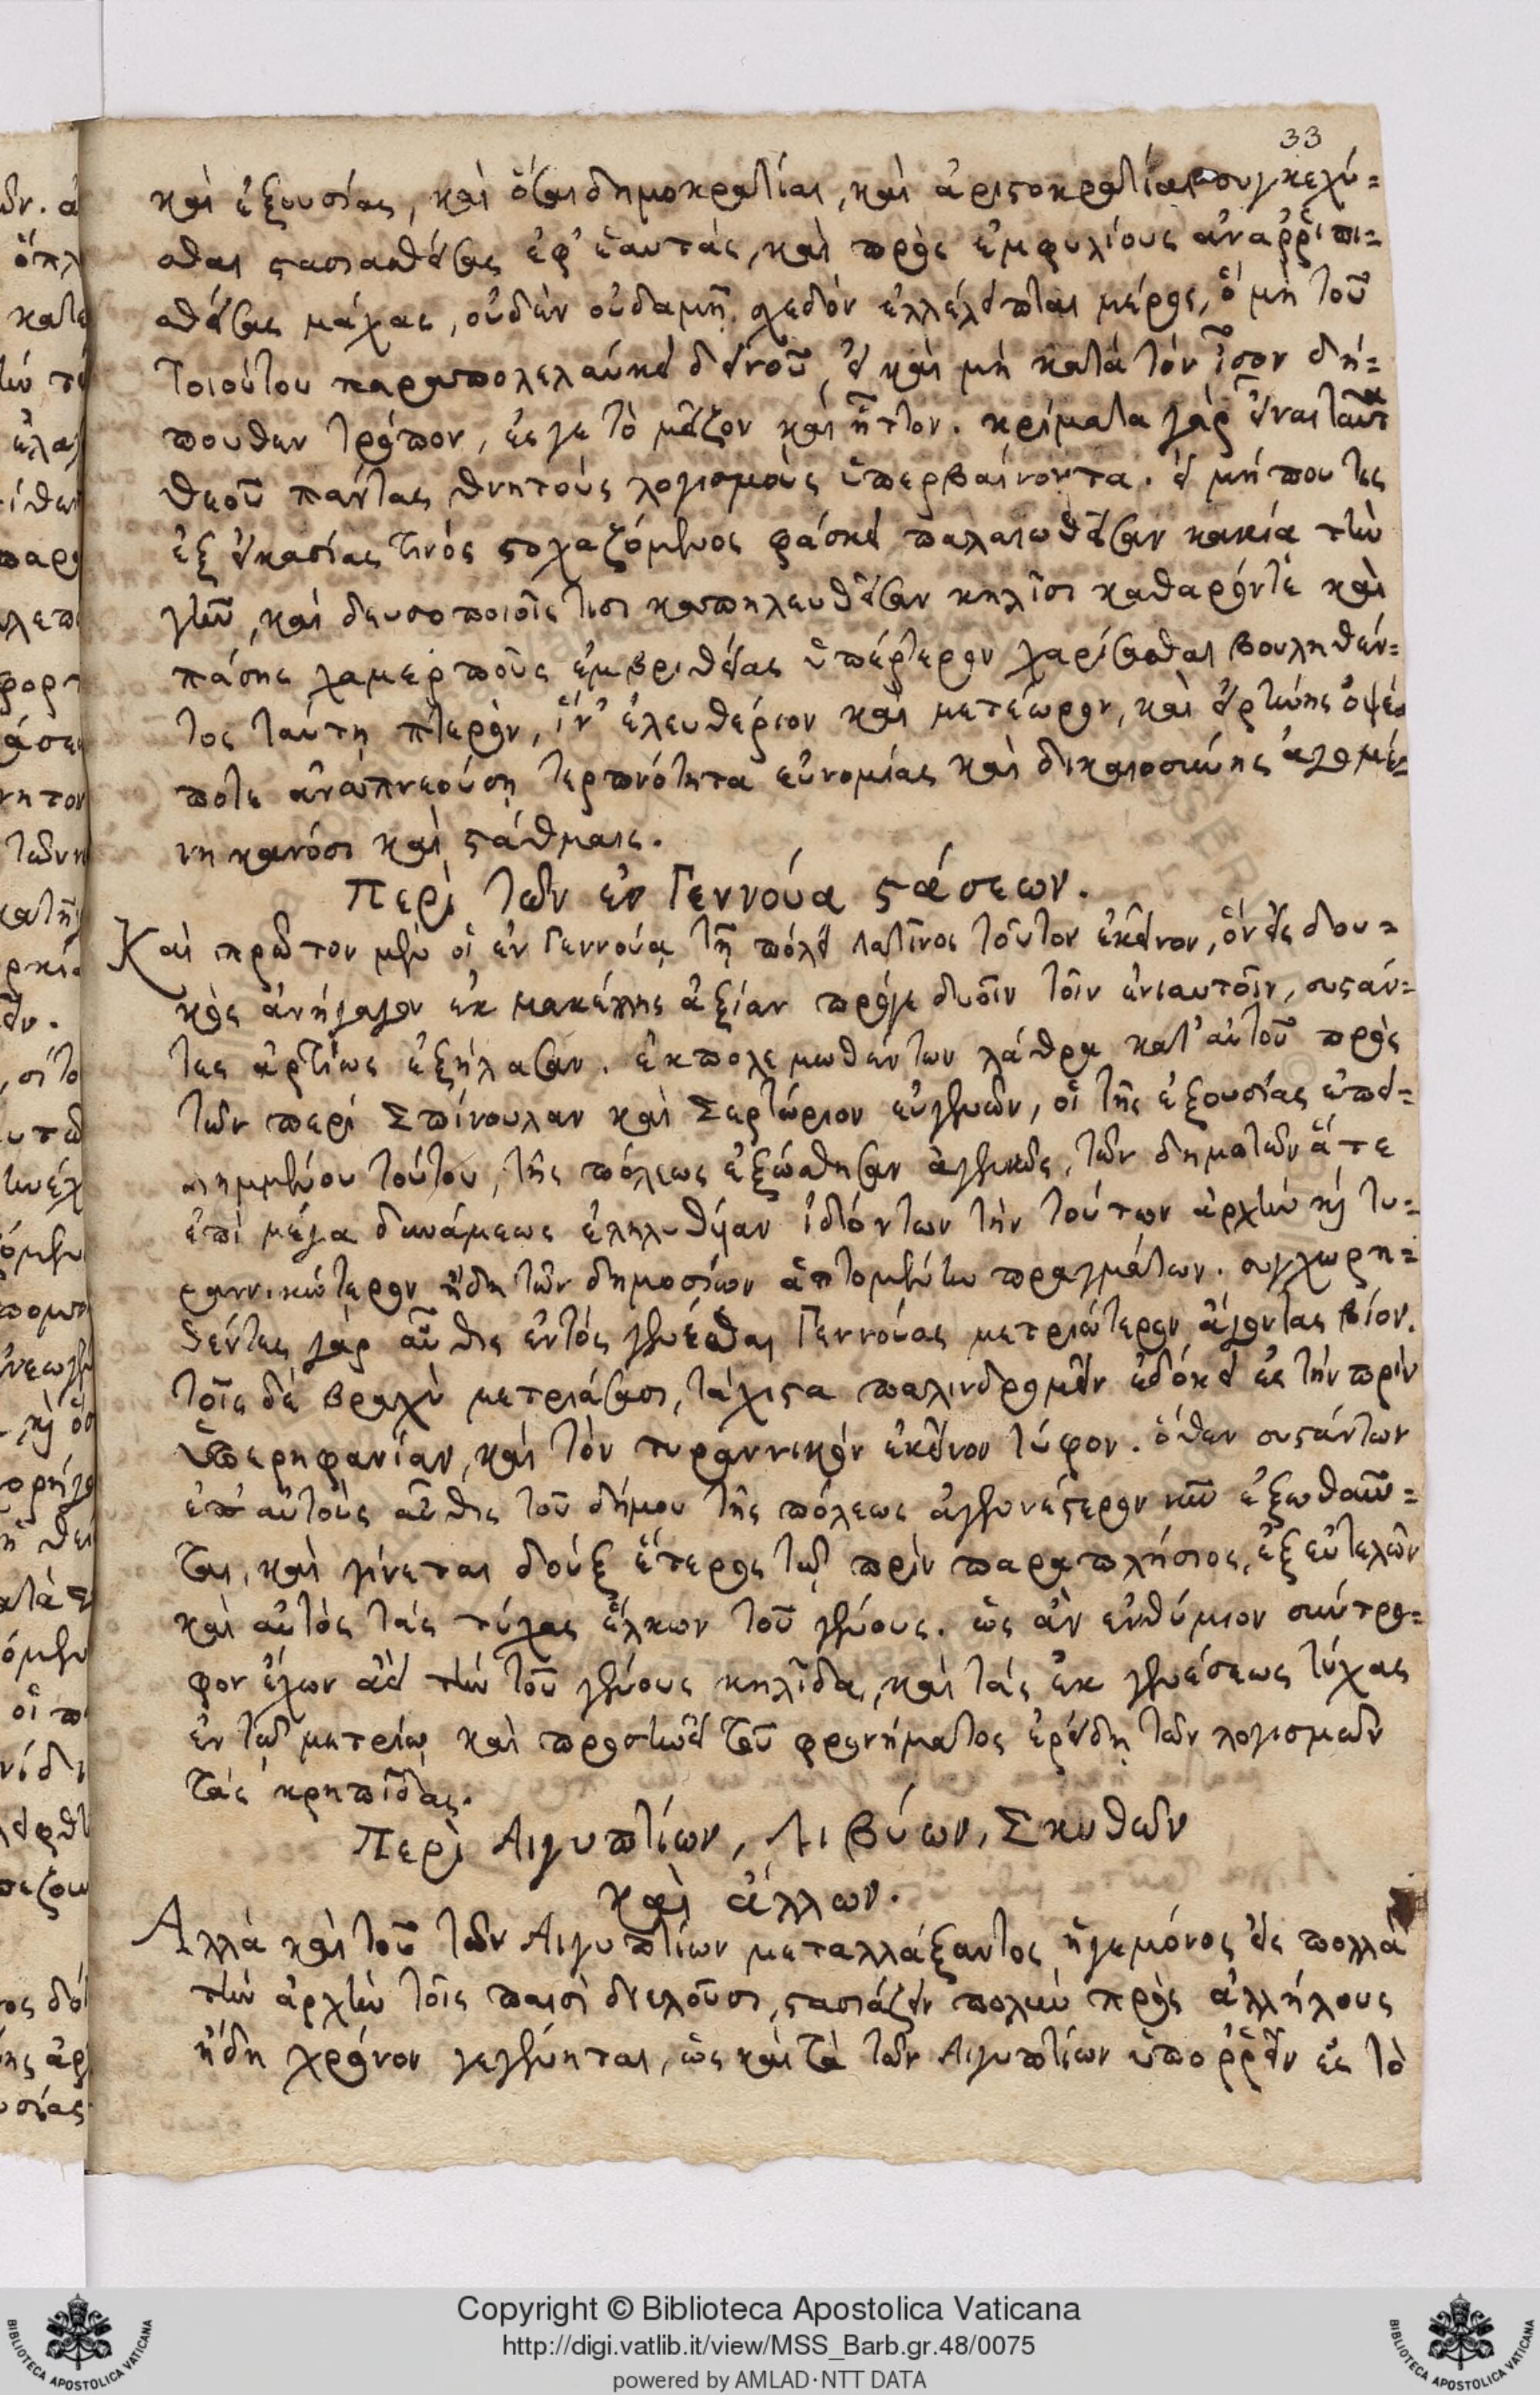 33
καὶ ἐξουσίας, καὶ ὅσαι δημοκρατίαι, καὶ ἀριστοκρατίαι συγκεχύ=
σθαι στασιασθείσας ἐφ' ἑαυτὰς, καὶ πρὸς ἐμφυλίους ἀναρριπι=
σθείσας μάχας, οὐδὲν οὐδαμῆ σχεδὸν ἐλλέλειπται μέρος, ὃ μὴ τοῦ
τοιούτου παραπολελαύκει δεινοῦ, εἰ καὶ μὴ κατὰ τὸν ἴσον δή=
πουθεν τρόπον, ἔς γε τὸ μεῖζον καὶ ἧττον. κρίματα γὰρ εἶναι ταῦτα
θεοῦ πάντας θνητοὺς λογισμοὺς ὑπερβαίνοντα. εἰ μή που τις
ἐξ εἰκασίας τινὸς στοχαζόμενος φάσκει παλαιωθεῖσαν κακία τὴν
γῆν, καὶ δευσοποιοῖς τισι καπηλευθεῖσαν κηλῖσι καθαρόν τε καὶ
πάσης χαμερποῦς ἐμβριθείας ὑπέρτερον χαρίσασθαι βουληθέν=
τος ταύτη πτερὸν, ἵν' ἐλευθέριον καὶ μετέωρον, καὶ εἰρήνης ὀψέ
ποτε ἀναπνεούση τερπνότητα εὐνομίας καὶ δικαιοσύνης ἀγομέ=
νη κανόσι καὶ στάθμαις.
Περὶ τῶν ἐν Γεννούα στάσεων.
Καὶ πρῶτον μὲν οἱ ἐν Γεννούα τῆ πόλει λατῖνοι τοῦτον ἐκεῖνον, ὃν εἰς δου=
κὸς ἀνήγαγον ἐκ μακέλλης ἀξίαν πρό γε δυοῖν τοῖν ἐνιαυτοῖν, συστάν=
τες ἀρτίως ἐξήλασαν. ἐκπολεμωθέντων λάθρα κατ' αὐτοῦ πρὸς
τῶν περὶ Σπίνουλαν καὶ Σερτώριον εὐγενῶν, οἳ τῆς ἐξουσίας ἐπει=
λημμένου τούτου, τῆς πόλεως ἐξώσθησαν ἀγενῶς, τῶν δημοτῶν ἅτε
ἐπὶ μέγα δυνάμεως ἐληλυθυῖαν ἰδόντων τὴν τούτων ἀρχὴν καὶ τυ=
ραννικώτερον ἤδη τῶν δημοσίων ἁπτομένην πραγμάτων. συγχωρη=
θέντες γὰρ αὖθις ἐντὸς γενέσθαι Γεννούας μετριώτερον ἄγοντας βίον.
τοῖς δὲ βραχὺ μετριάσασι, τάχιστα παλινδρομεῖν ἐδόκει ἐς τὴν πρὶν
ὑπερηφανίαν, καὶ τὸν τυραννικὸν ἐκεῖνον τύφον. ὅθεν συστάντων
ἐπ' αὐτοὺς αὖθις τοῦ δήμου τῆς πόλεως ἀγεννέστερον νῦν ἐξωθοῦν=
ται, καὶ γίνεται δοὺξ ἕτερος τῷ πρὶν παραπλήσιος, ἐξ εὐτελῶν
καὶ αὐτὸς τὰς τύχας ἕλκων τοῦ γένους. ὡς ἂν ἐνθύμιον σύντρο=
φον ἔχων ἀεὶ τὴν τοῦ γένους κηλῖδα, καὶ τὰς ἐκ γενέσεως τύχας
ἐν τῷ μετρίῳ καὶ προσηνεῖ τοῦ φρονήματος ἐρείδη τῶν λογισμῶν
τὰς κρηπῖδας.
Περὶ Αἰγυπτίων, Λιβύων, Σκυθῶν
καὶ ἄλλων.
Αλλὰ καὶ τοῦ τῶν Αἰγυπτίων μεταλλάξαντος ἡγεμόνος εἰς πολλὰ
τὴν ἀρχὴν τοῖς παισὶ διελοῦσι, στασιάζειν πολὺν πρὸς ἀλλήλους
ἤδη χρόνον γεγένηται, ὡς καὶ τὰ τῶν Αἰγυπτίων ὑπορρεῖν ἐς τὸ
Copyright © Biblioteca Apostolica Vaticana
http://digi.vatlib.it/view/MSS_Barb.gr.48/0075
powered by AMLAD·NTT DATA
BIBLIOTECA APOSTOLICA VATICANA
BIBLIOTECA APOSTOLICA VATICANA